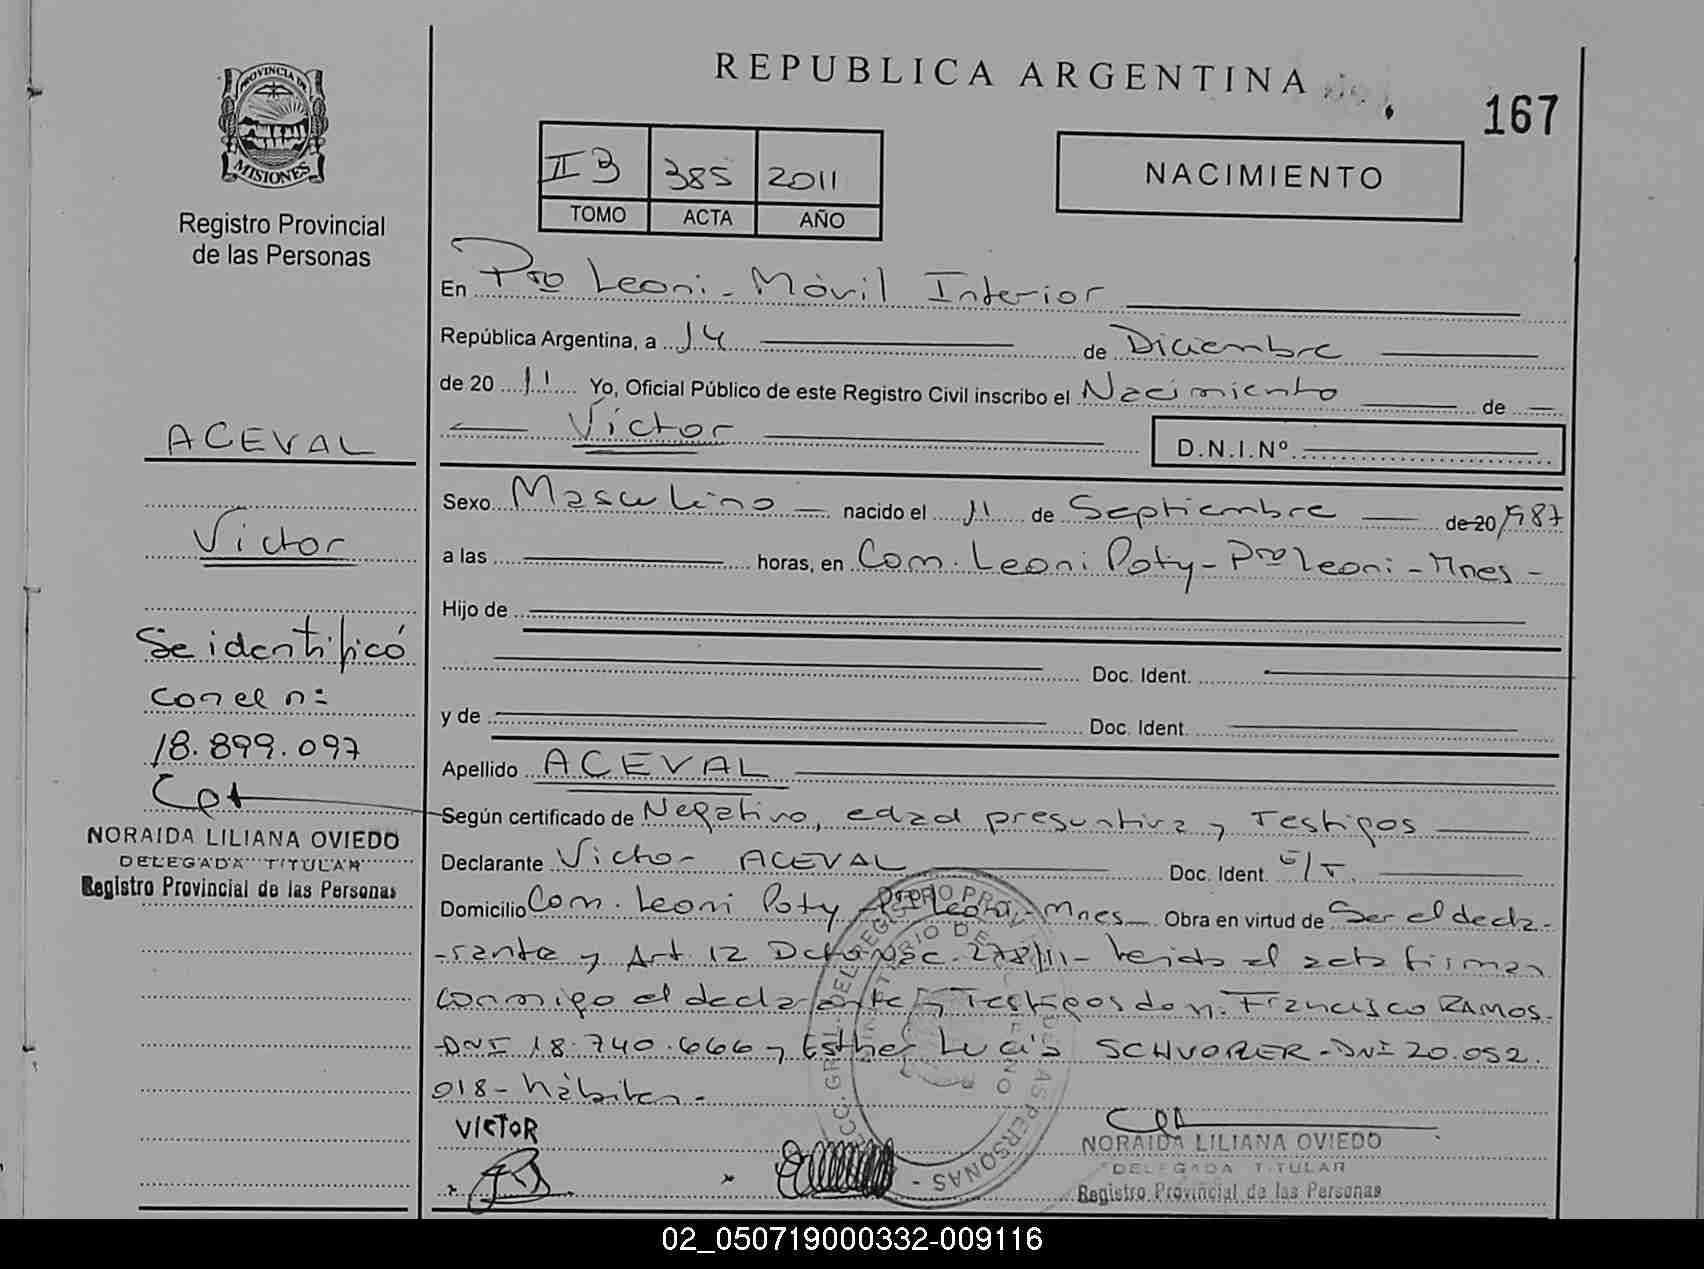 REPUBLICA ARGENTINA
167
PROVINCIA DE
MISIONES
Registro Provincial
de las Personas
II B 385 2011
TOMO ACTA AÑO
NACIMIENTO
En Pto Leoni - Móvil Interior
República Argentina, a 14 de Diciembre
de 20 11 Yo, Oficial Público de este Registro Civil inscribo el Nacimiento de
Víctor D.N.I.Nº
Sexo Masculino nacido el 11 de Septiembre de 20 1987
a las horas, en Com. Leoni Poty - Pto Leoni - Mnes -
Hijo de
Doc. Ident.
y de Doc. Ident.
Apellido ACEVAL
Según certificado de Negativo, edad presuntiva y Testigos
Declarante Víctor ACEVAL Doc. Ident.
Domicilio Com. Leoni Poty - Pto Leoni - Mnes - Obra en virtud de Ser el decla-
rante y Art. 12 Dcto Nac. 278/11 - Leída el acta firman
conmigo el declarante y Testigos don. Francisco RAMOS.
DNI 18.740.666 y Esther Lucía DNI 20.052.
018 - hábiles -
VICTOR
NORAIDA LILIANA OVIEDO
DELEGADA TITULAR
Registro Provincial de las Personas
ACEVAL
Víctor
Se identificó
con el nº
18.899.097
NORAIDA LILIANA OVIEDO
DELEGADA TITULAR
Registro Provincial de las Personas
02_050719000332-009116